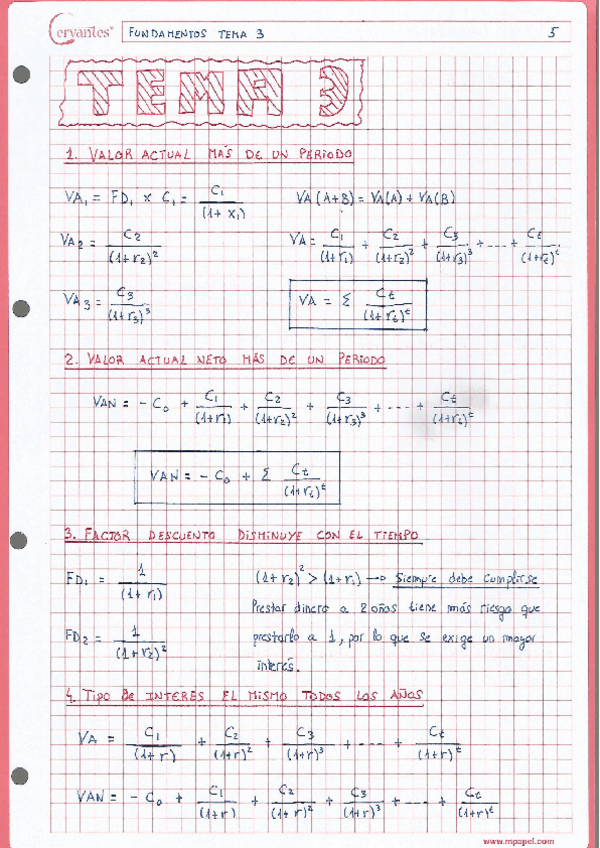 Cervantes® FUNDAMENTOS TEMA 3 5
TEMA 3
1. VALOR ACTUAL MÁS DE UN PERIODO
VA₁ = FD₁ x C₁ = C₁/(1+x₁) VA(A+B) = VA(A) + VA(B)
VA₂ = C₂/(1+r₂)² VA = C₁/(1+r₁) + C₂/(1+r₂)² + C₃/(1+r₃)³ + --- + Ct/(1+rt)ᵗ
VA₃ = C₃/(1+r₃)³ VA = Σ Ct/(1+rt)ᵗ
2. VALOR ACTUAL NETO MÁS DE UN PERIODO
VAN = - C₀ + C₁/(1+r₁) + C₂/(1+r₂)² + C₃/(1+r₃)³ + --- + Ct/(1+rt)ᵗ
VAN = - C₀ + Σ Ct/(1+rt)ᵗ
3. FACTOR DESCUENTO DISMINUYE CON EL TIEMPO
FD₁ = 1/(1+r₁) (1+r₂)² > (1+r₁) → Siempre debe cumplirse
Prestar dinero a 2 años tiene más riesgo que
FD₂ = 1/(1+r₂)² prestarlo a 1, por lo que se exige un mayor
interés.
4. TIPO DE INTERÉS EL MISMO TODOS LOS AÑOS
VA = C₁/(1+r) + C₂/(1+r)² + C₃/(1+r)³ + --- + Ct/(1+r)ᵗ
VAN = - C₀ + C₁/(1+r) + C₂/(1+r)² + C₃/(1+r)³ + --- + Ct/(1+r)ᵗ
www.mpapel.com